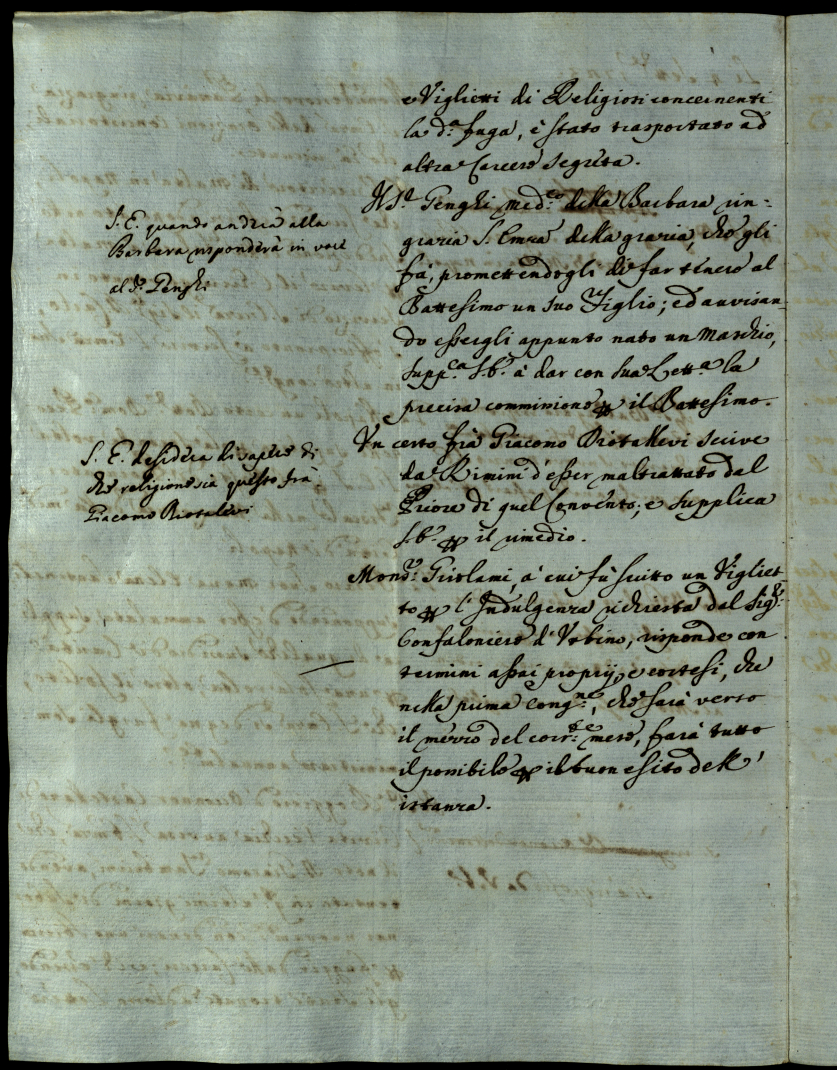 e Viglietti di Religiosi concernenti
la d.ª fuga, è stato trasportato ad
altra Carcere segreta.
S. E. quando andrà alla
Barbara risponderà in voce
al d.º Genghi
Il S.r Genghi med.º della Barbara rin-
grazia S. Emza della grazia, che gli
fà, promettendogli di far tenere al
Battesimo un suo Figlio; ed avvisan-
do essergli appunto nato un Maschio,
supp.ca S. E. à dar con sua Lett.ª la
precisa commissione p il Battesimo.
S. E. desidera di sapere di
che religione sia questo frà
Giacomo Biotalevi
Un certo frà Giacomo Diotallevi scrive
da Rimini d'esser maltrattato dal
Priore di quel Convento; e supplica
S. E. p il rimedio.
Mons.r Girolami, à cui fù scritto un Vigliet-
to p l'Indulgenza richiesta dal Sig.r
Confaloniere d'Urbino, risponde con
termini assai proprij, e cortesi, che
nella prima Cong.ne, che sarà verso
il mezzo del corr.te mese, farà tutto
il possibile p il buon esito dell'
istanza.